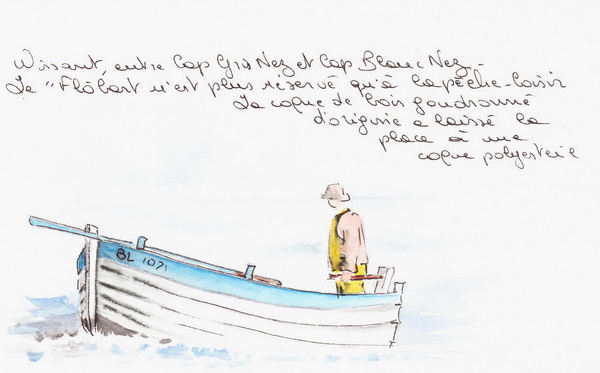 Wissant, entre Cap Gris Nez et Cap Blanc Nez.
Le "Flobart n'est plus réservé qu'à la pêche-loisir
La coque de bois goudronné
d'origine a laissé la
place à une
coque polyester
BL 1071